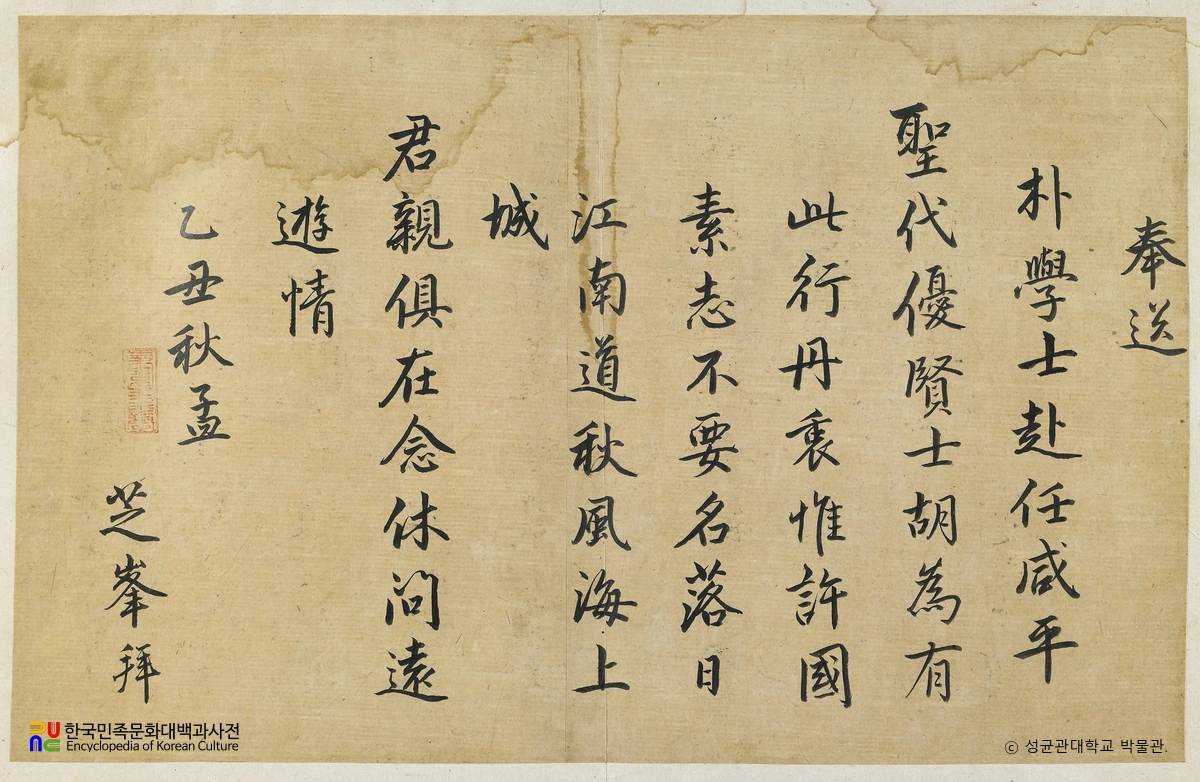 奉送
朴學士赴任咸平
聖代優賢士胡為有
此行丹衷惟許國
素志不要名落日
江南道秋風海上
城
君親俱在念休問遠
遊情
乙丑秋孟
芝峯拜
한국민족문화대백과사전
Encyclopedia of Korean Culture
ⓒ 성균관대학교 박물관.